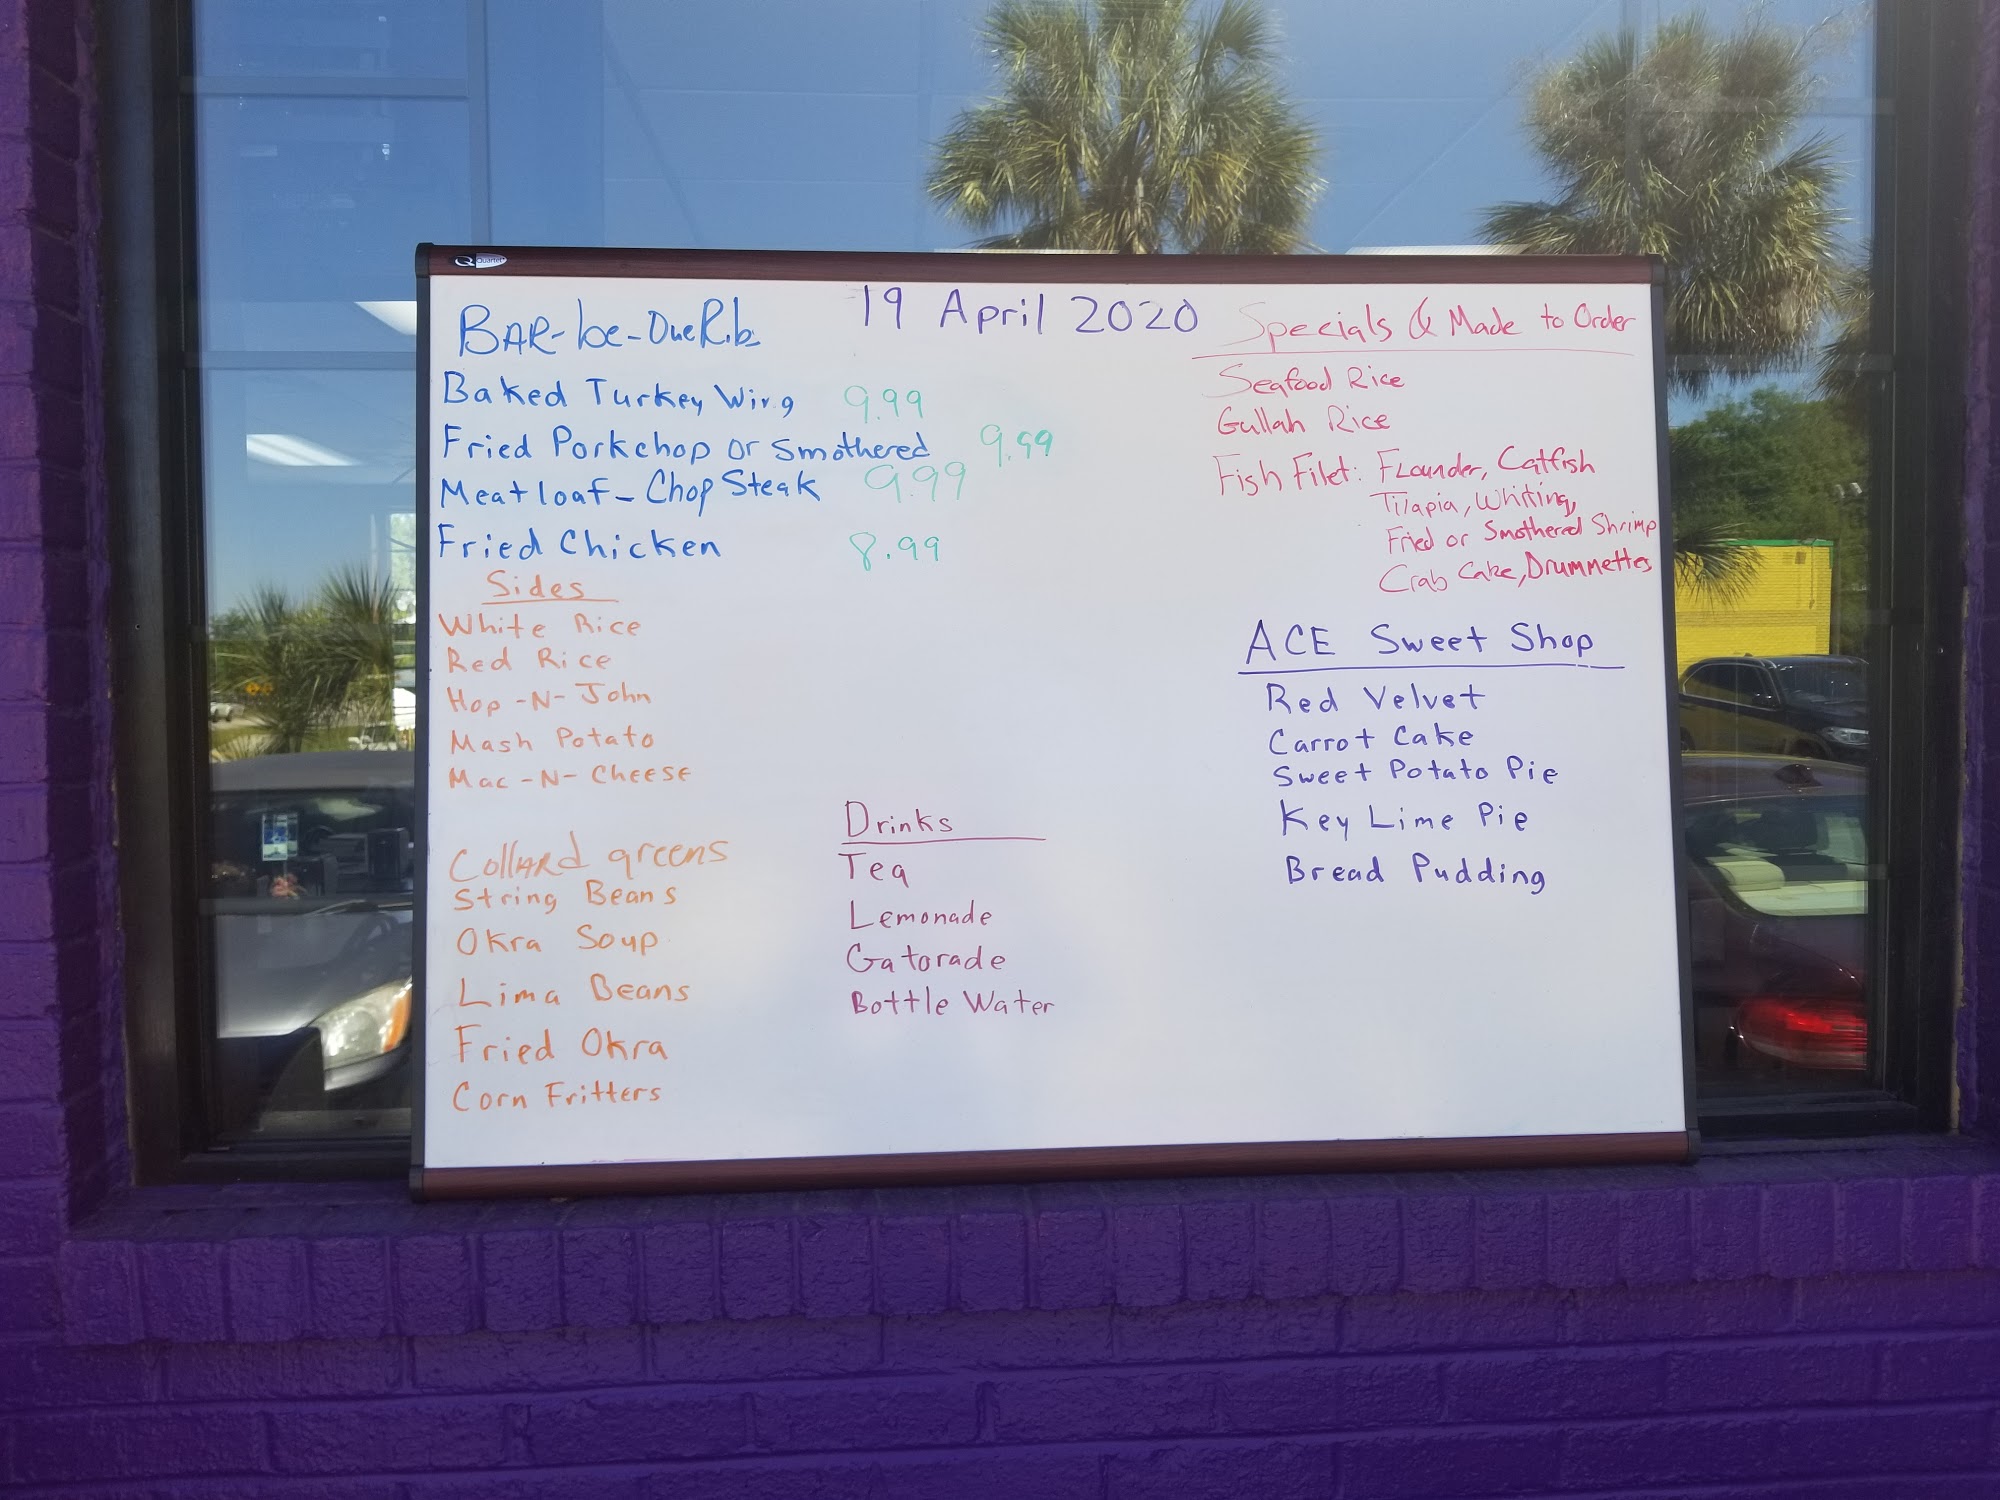 Quartet
BAR-be-Que Rib
19 April 2020
Baked Turkey Wing 9.99
Fried Porkchop or Smothered 9.99
Meatloaf-Chop Steak 9.99
Fried Chicken 8.99
Sides
White Rice
Red Rice
Hop-N-John
Mash Potato
Mac-N-Cheese
Collard greens
String Beans
Okra Soup
Lima Beans
Fried Okra
Corn Fritters
Drinks
Tea
Lemonade
Gatorade
Bottle Water
Specials & Made to Order
Seafood Rice
Gullah Rice
Fish Filet: Flounder, Catfish
Tilapia, Whiting,
Fried or Smothered Shrimp
Crab Cake, Drummettes
ACE Sweet Shop
Red Velvet
Carrot Cake
Sweet Potato Pie
Key Lime Pie
Bread Pudding